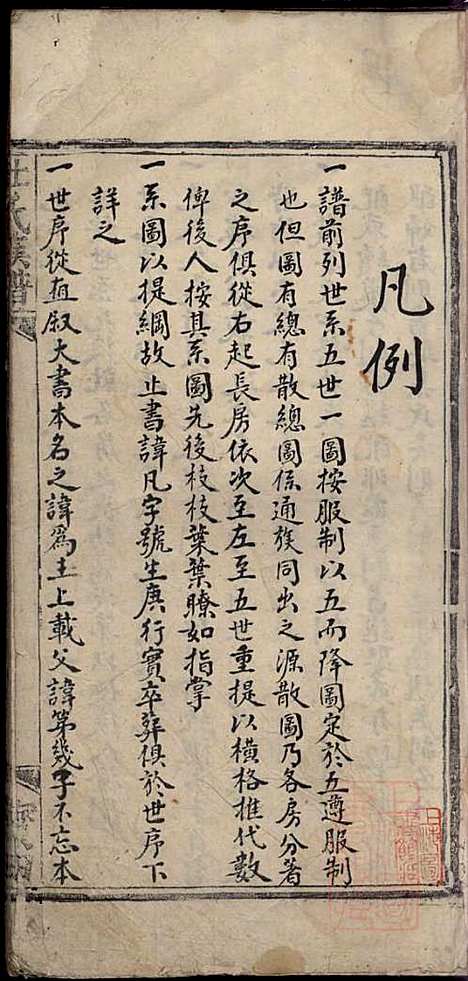 凡例
一譜前列世系五世一圖按服制以五而降圖定於五遵服制
也但圖有總有散總圖係通族同出之源散圖乃各房分著
之序俱從右起長房依次至左至五世重提以橫格推代數
俾後人按其系圖先後枝枝葉葉瞭如指掌
一系圖以提綱故止書諱凡字號生庚行實卒葬俱於世序下
詳之
一世序從直叙大書本名之諱為主上載父諱第幾子不忘本
氏族譜